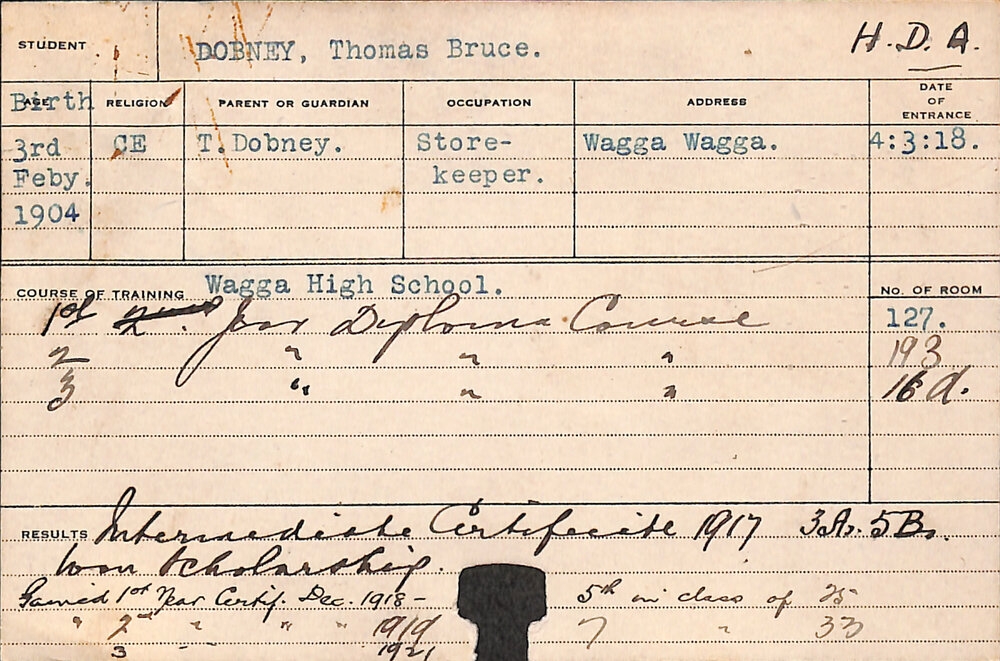 STUDENT DOBNEY, Thomas Bruce. H. D. A.
Birth RELIGION PARENT OR GUARDIAN OCCUPATION ADDRESS DATE OF ENTRANCE
3rd CE T. Dobney. Store- Wagga Wagga. 4:3:18.
Feby. keeper.
1904
COURSE OF TRAINING Wagga High School. No. OF ROOM
1st Year Diploma Course 127.
2 " " " 193
3 " " " 16 d.
RESULTS Intermediate Certificate 1917 3As. 5Bs.
won Scholarship.
Gained 1st Year Certif. Dec. 1918 - 5th in class of 25
" 2nd " " " 1919 7 " 33
3 - - 1921